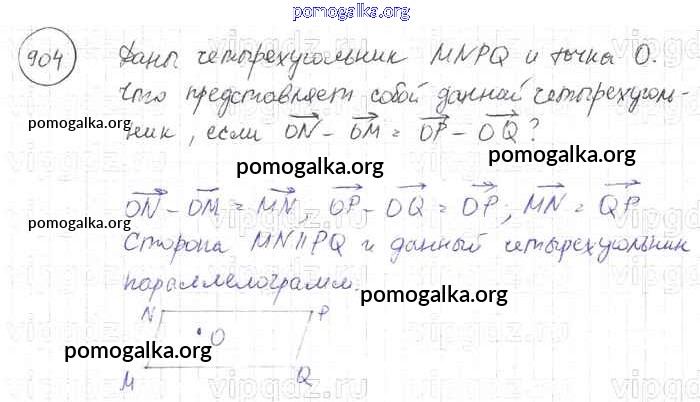 pomogalka.org
904 Даны четырехугольник MNPQ и точка O.
Что представляет собой данный четырехуголь-
pomogalka.org
ник, если ON - OM = OP - OQ?
pomogalka.org
ON - OM = MN, OP - OQ = OP; MN = QP
pomogalka.org
Сторона MN || PQ и данный четырехугольник
параллелограмм.
pomogalka.org
N P
O
pomogalka.org
M Q
vipgdz.ru vipgdz.ru